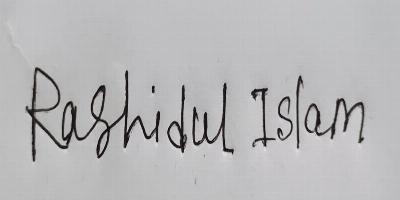 Rashidul Islam